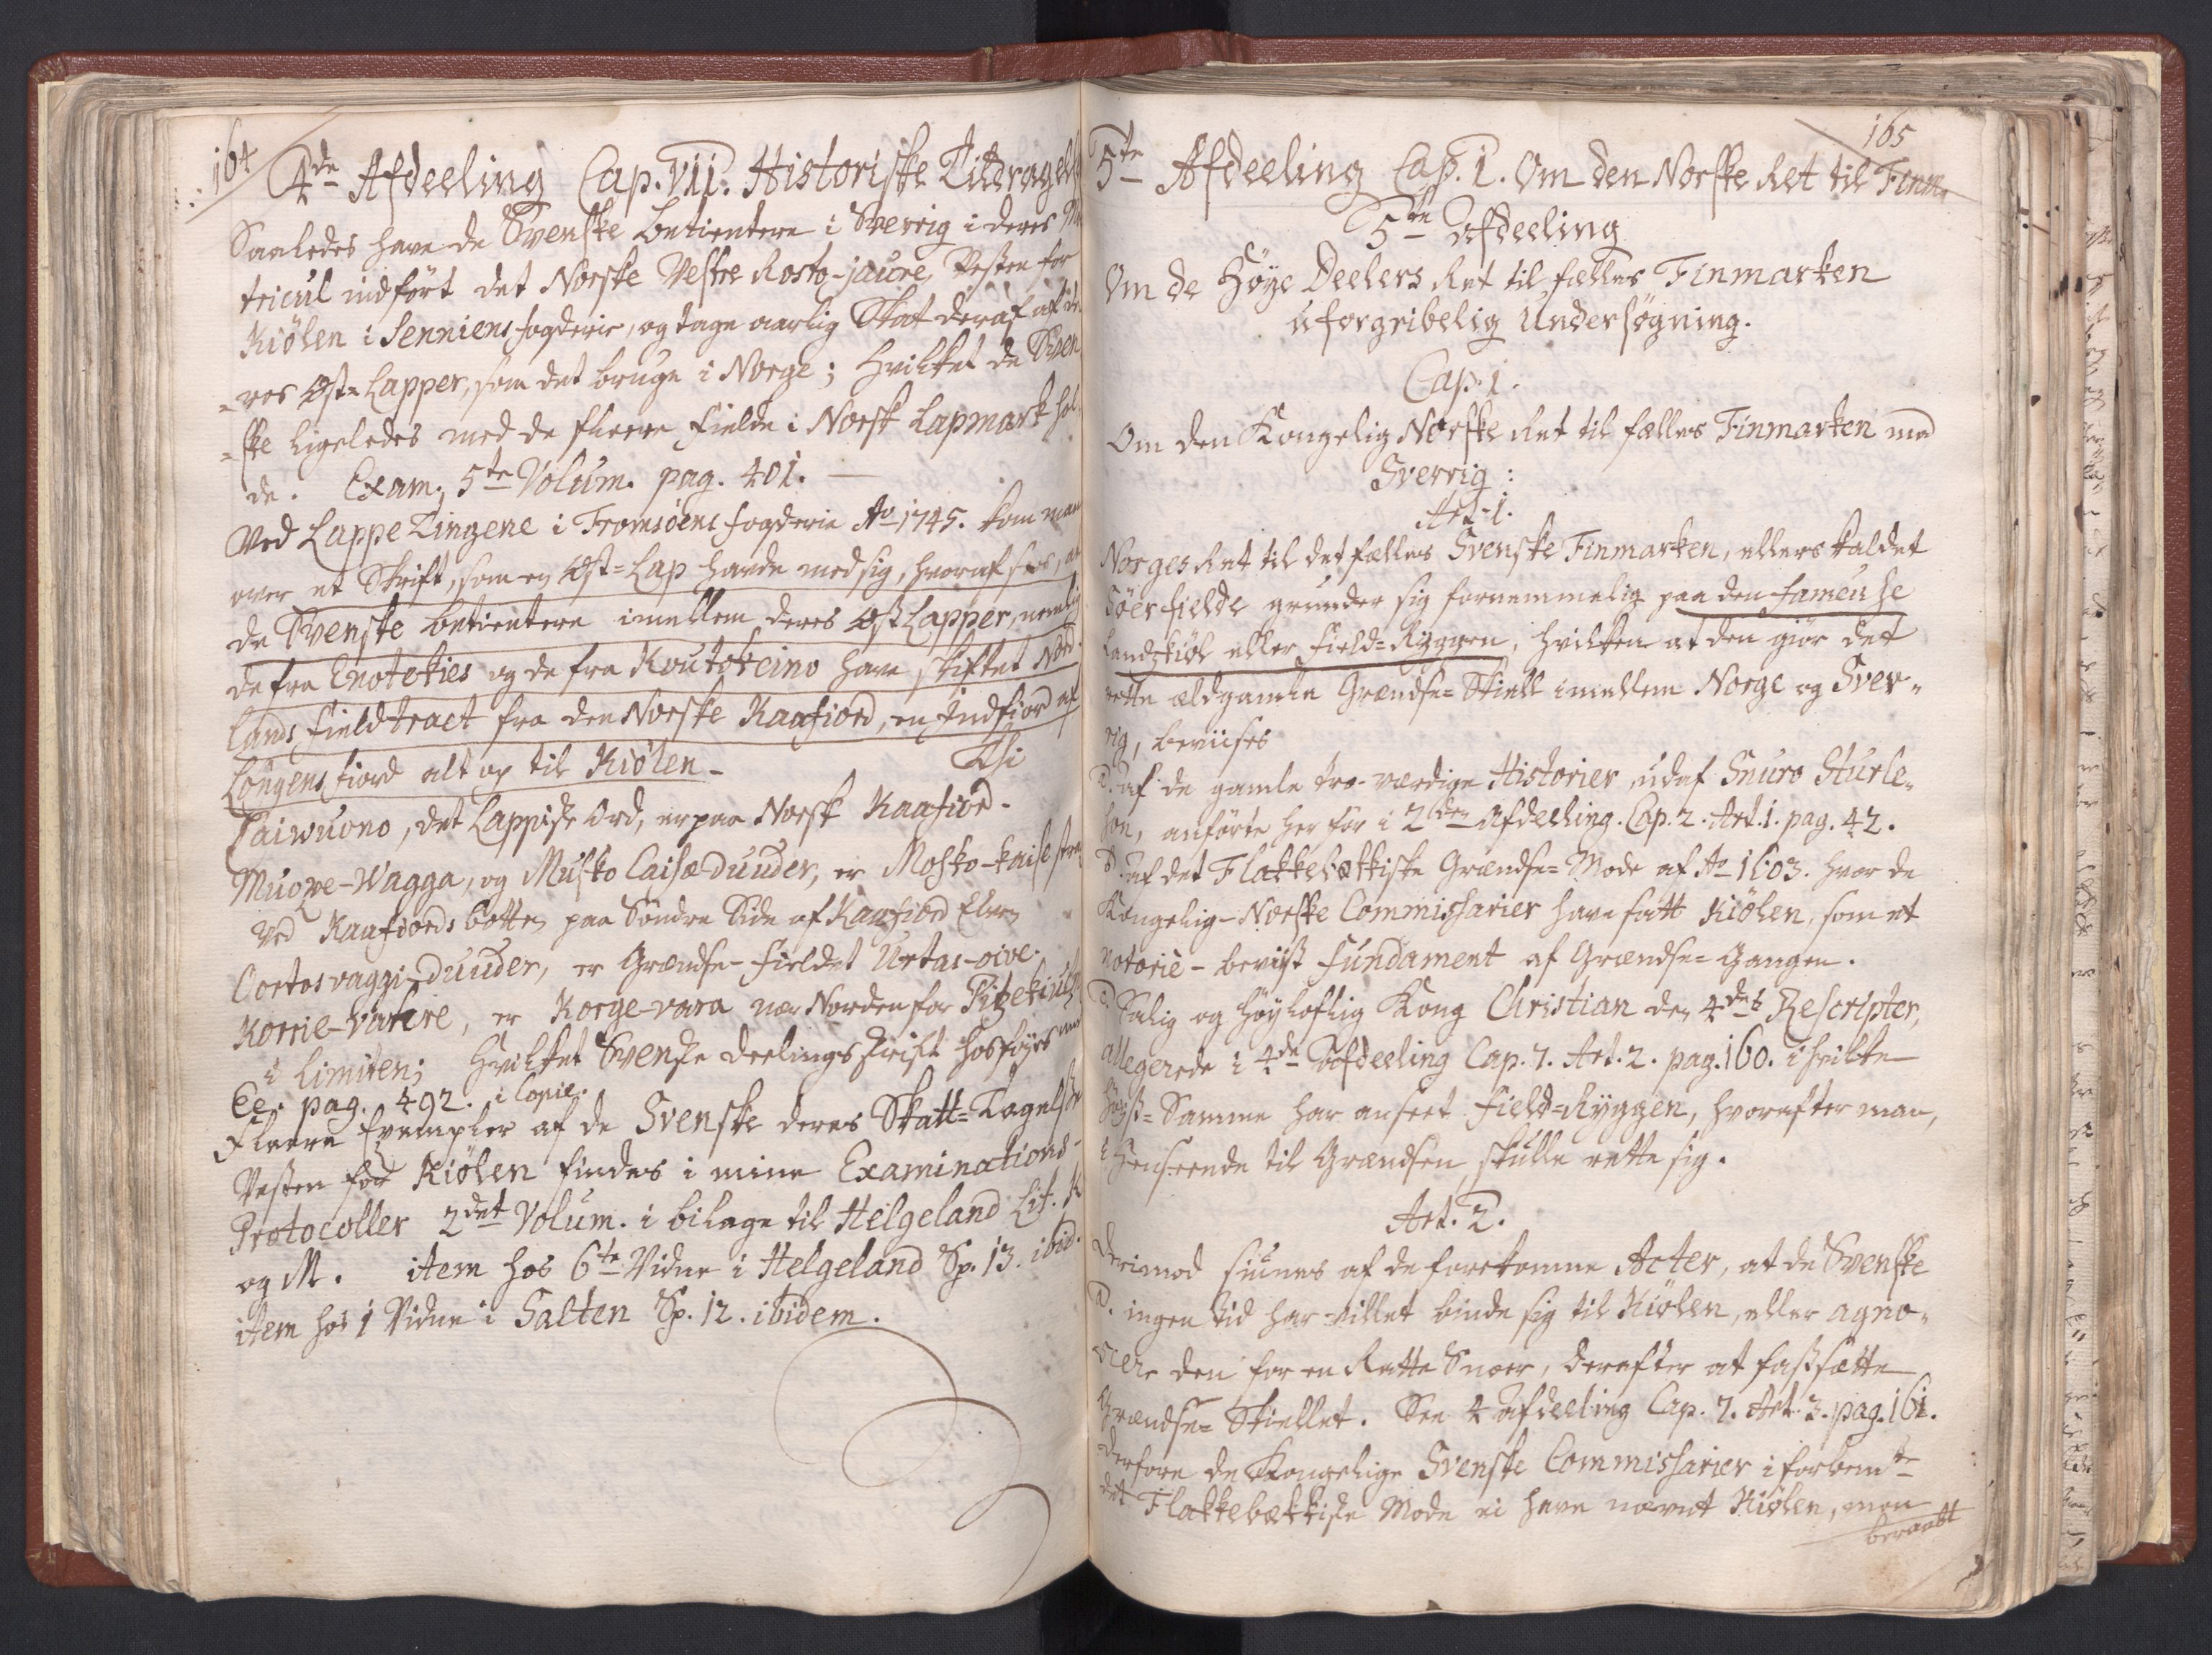 164
4de Afdeeling Cap. VII. Historiske Tildragels
Saaledes have de Svenske betientere i Sverrig i deres Ma
tricul indført det Norske Vestre Rosto-jaure Vesten for
Kiølen i Senniens fogderie, og tage aarlig Skat deraf af de
=res Øst=Lapper, som det bruge i Norge; hvilket de Sven
=ske ligeledes med de fleere Fielde i Norsk Lapmark hol
de. Exam. 5te Volum. pag. 401. —
Ved LappeTingene i Tromsöens fogderie Ao 1745. kom man
over et Skrift, som en Øst=Lap havde med sig, hvoraf sees, at
de Svenske betientere imellem deres ØstLapper, nemlig
de fra Enotekies og de fra Koutokeino have skiftet Nord
lands fieldtract fra den Norske Kaafiord, en Indfiord af
Lÿngens fiord alt op til Kiølen -
Thi
Caiwuono, det Lappiske Ord, er paa Norsk Kaafiord.
Muowe-Wagga, og Musko Caisæ Duuder, er Mosko-kaise
ved Kaafiords botten paa Søndre Side af Kaafiord Elven
Cortosvaggi-Duuder, er Grændse-fieldet Urtas-oive.
Korrie-Varre, er Korge-vara nær Norden for
i Limiten; hvilket Svenske deelings skrift hosføyes
Ee. pag. 492. i Copie.
Fleere Exempler af de Svenske deres Skatt=Tagelse
Vesten for Kiølen findes i mine Examinations-
Protocoller 2det Volum. i bilage til Helgeland Lit. K
og M. item hos 6te Vidne i Helgeland Sp. 13. ibid.
item hos 1 Vidne i Salten Sp. 12. ibidem.
165
5te Afdeeling Cap. 1. Om den Norske Ret til Finm.
5te Afdeeling
Om de Høye Deelers Ret til fælles Finmarken
uforgribelig Undersøgning.
Cap. 1.
Om den Kongelig Norske Ret til fælles Finmarken med
Sverrig:
Art. 1.
Norges Ret til det fælles Svenske Finmarken, ellers kaldet
Söerfielde grunder sig fornemmelig paa den fameuse
Landskiöl eller Field=Ryggen, hvilken at den giør det
rette ældgamle Grændse=Skiell imellem Norge og Sver=
rig, beviises
af de gamle tro-værdige Historier udaf Snuro Sturle=
son, anførte her för i 2den Afdeeling. Cap. 2. Art. 1. pag. 42.
af det Flakkebækkiske Grændse=Mode af Ao 1603. hvor de
Kongelig-Norske Commissarier have satt Kiölen, som et
notorie-beviist Fundament af Grændse=Gangen.
Salig og høyloflig Kong Christian den 4des Rescripter,
allegerede i 4de Afdeeling Cap. 7. Art. 2. pag. 160. i hvilke
Høyst=Samme har anseet Field=Ryggen, hvorefter man,
i henseende til Grændsen skulle rette sig.
Art. 2.
Derimod siunes af de forekomne Acter, at de Svenske
ingen tid har villet binde sig til Kiølen, eller agno=
scere den for en Rette Snoer, derefter at fastsætte
Grændse=Skiellet. See 4 Afdeeling Cap. 7. Art. 3. pag. 161.
Derfore de Kongelige Svenske Commissarier i forbemte
det Flakkebækkiske Mode ei have nævnt Kiölen, men
beraabt